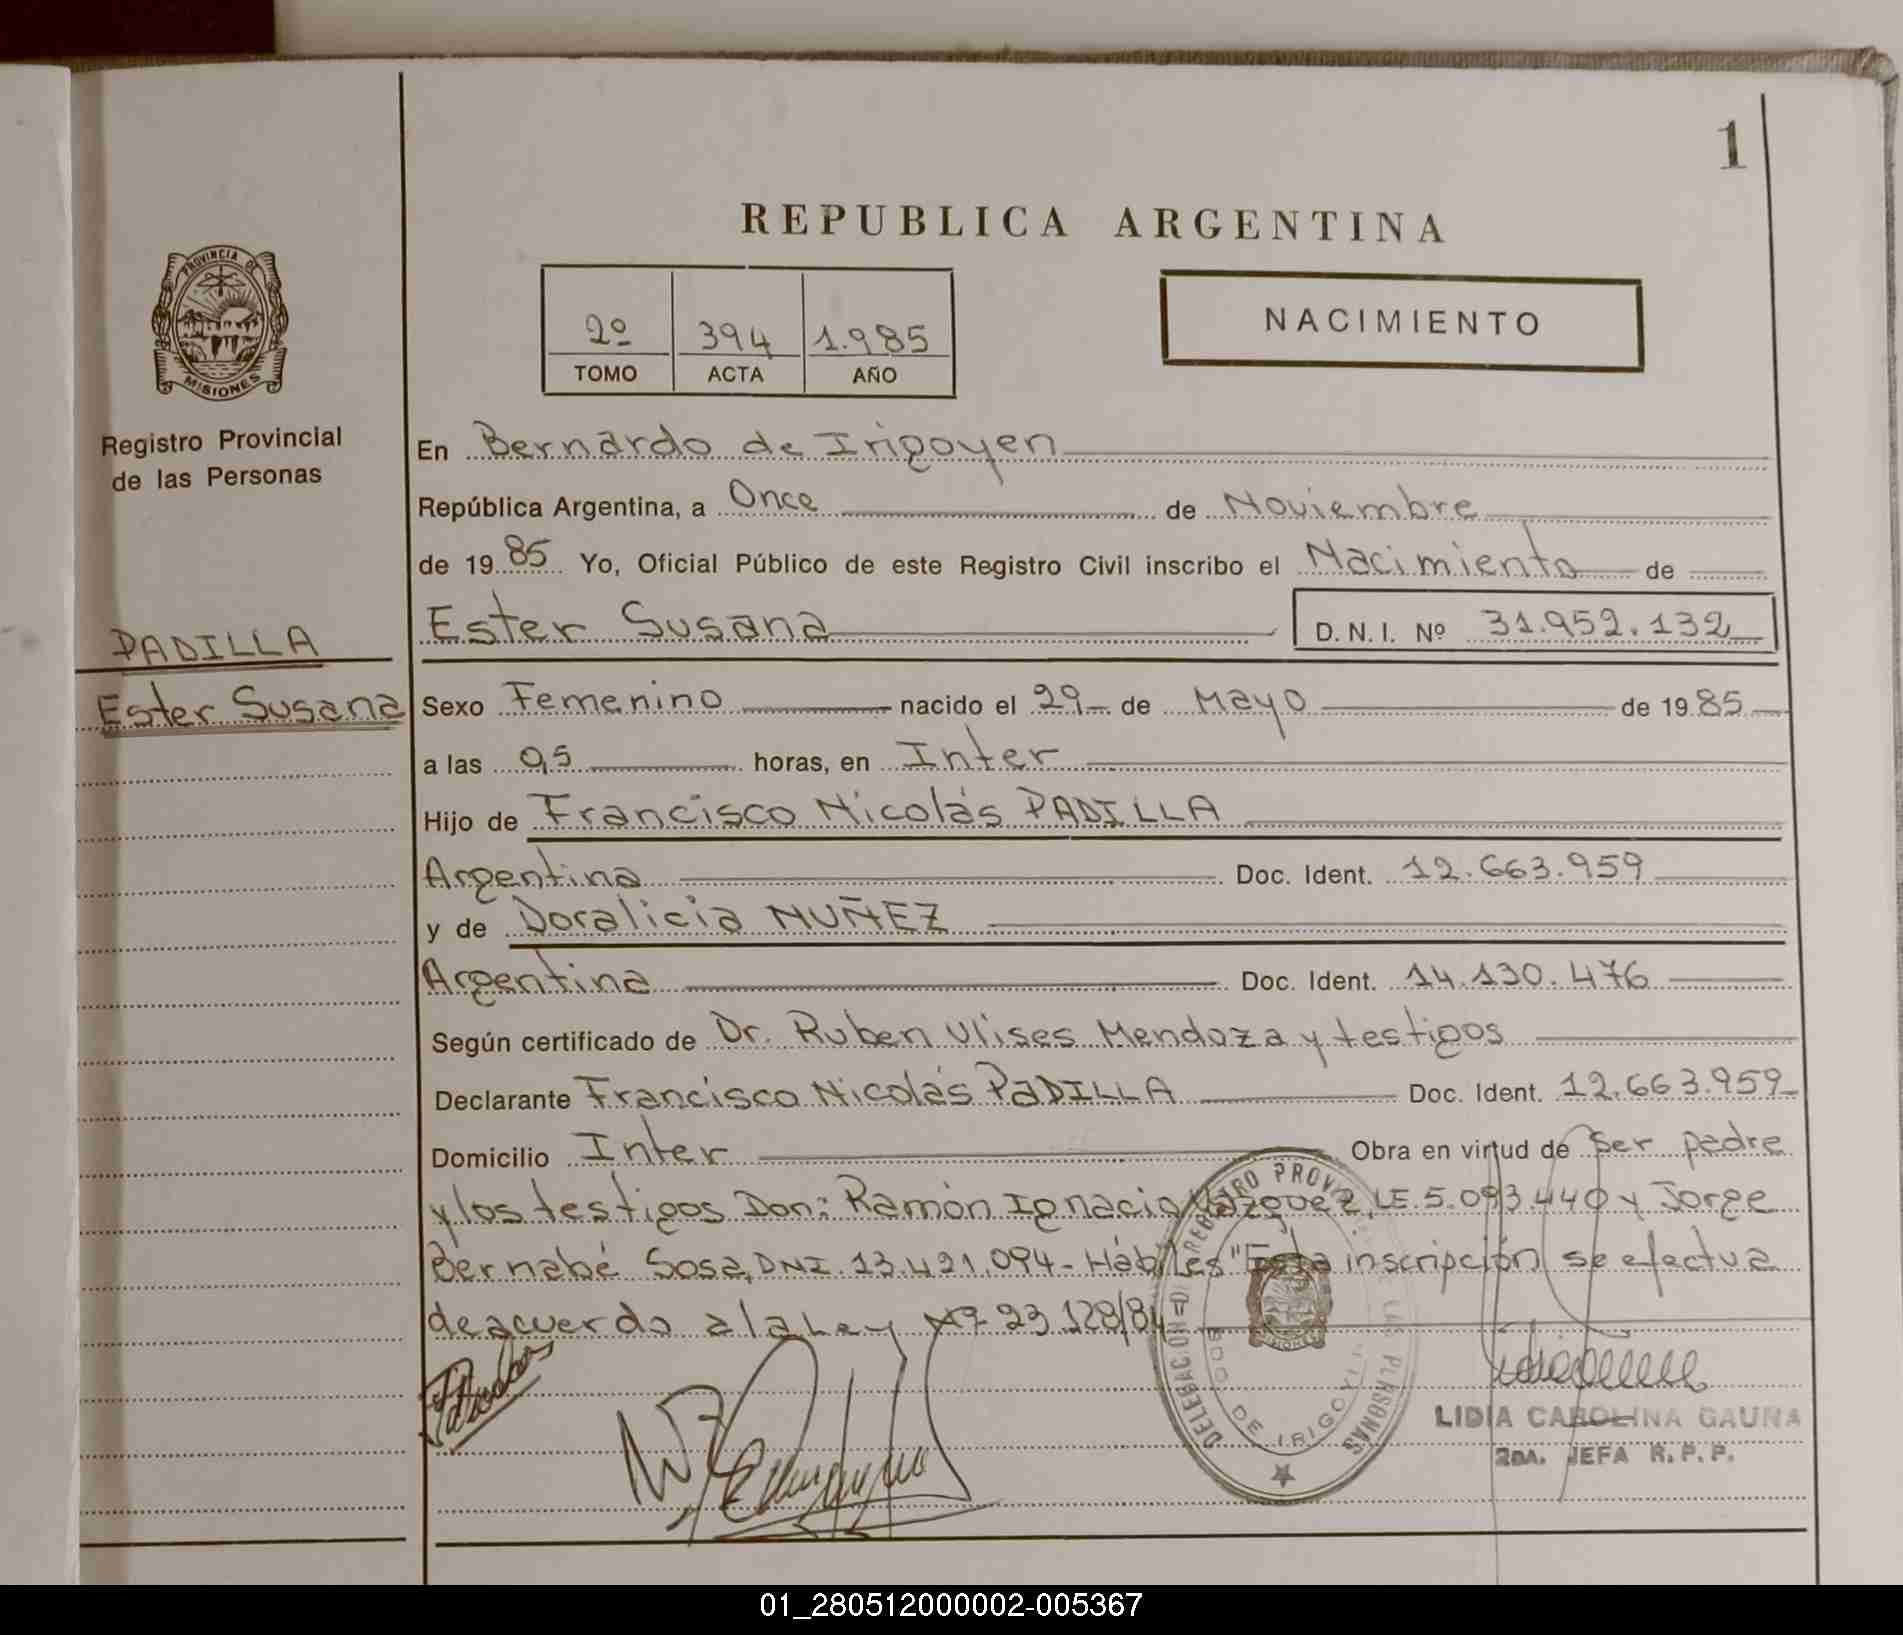 1
REPUBLICA ARGENTINA
PROVINCIA DE
MISIONES
Registro Provincial
de las Personas
2º 394 1.985
TOMO ACTA AÑO
NACIMIENTO
En Bernardo de Irigoyen
República Argentina, a Once de Noviembre
de 19 85 Yo, Oficial Público de este Registro Civil inscribo el Nacimiento de
Ester Susana D. N. I. Nº 31.952.132
PADILLA
Ester Susana
Sexo Femenino nacido el 29 de Mayo de 19 85
a las 0,5 horas, en Inter
Hijo de Francisco Nicolás PADILLA
Argentina Doc. Ident. 12.663.959
y de Doralicia NUÑEZ
Argentina Doc. Ident. 14.130.476
Según certificado de Dr. Ruben Ulises Mendoza y testigos
Declarante Francisco Nicolás PADILLA Doc. Ident. 12.663.959
Domicilio Inter Obra en virtud de ser padre
y los testigos Don: Ramón Ignacio Vázquez, LE. 5.093.440 y Jorge
Bernabé Sosa, DNI. 13.421.094 - Hábiles "Esta inscripción se efectua
deacuerdo a la Ley Nº 23.128/84
DELEGACION DE REGISTRO PROVINCIAL DE LAS PERSONAS
BDO DE IRIGOYEN
LIDIA CAROLINA GAUNA
2DA. JEFA R. P. P.
01_280512000002-005367